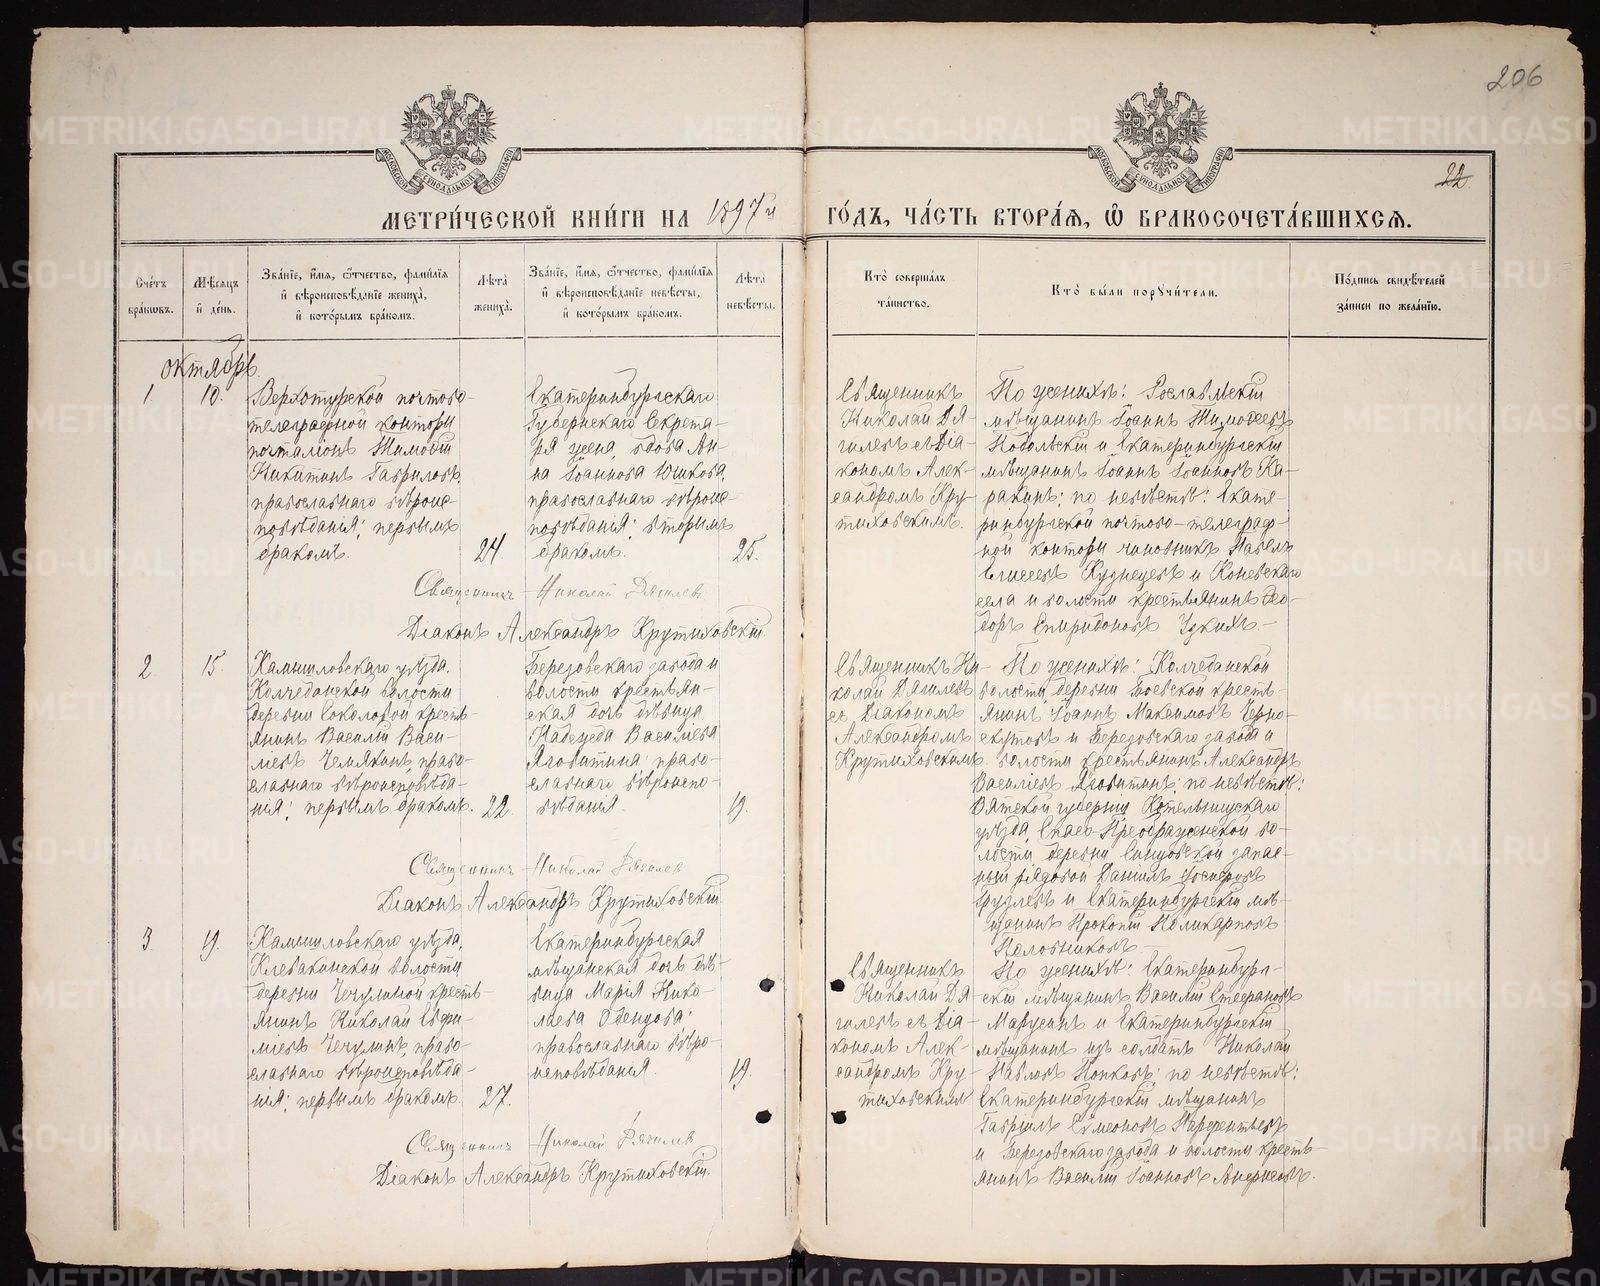 206
22.
МЕТРИ́ЧЕСКОЙ КНИ́ГИ НА 1897й ГО́ДЪ, ЧА́СТЬ ВТОРА́Я, Ѡ БРАКОСОЧЕТА́ВШИХСЯ.
Сче́тъ бра́кωвъ.
Мѣ́сяцъ и҆ де́нь.
Зва́нїе, и҆́мя, ѻ҆́тчество, фами́лїя и҆ вѣроисповѣ́данїе жениха̀, и҆ кото́рымъ бра́комъ.
Лѣта̀ жениха̀.
Зва́нїе, и҆́мя, ѻ҆́тчество, фами́лїя и҆ вѣроисповѣ́данїе невѣ́сты, и҆ кото́рымъ бра́комъ.
Лѣта̀ невѣ́сты.
Кто̀ соверша́лъ та́инство.
Кто̀ бы́ли порꙋчи́тели.
По́дпись свидѣ́телей за́писи по жела́нїю.
Октябрь.
1.
10.
Верхотурской почтово-
телеграфной конторы
почталіонъ Тимоѳей
Никитинъ Гавриловъ,
православнаго вѣроис-
повѣданія; первымъ
бракомъ.
24.
Екатеринбургскаго
Губернскаго Секрета-
ря жена, вдова Ан-
на Іоаннова Юшкова,
православнаго вѣроис-
повѣданія; вторымъ
бракомъ.
25.
Священникъ
Николай Дя-
гилевъ съ Діа-
кономъ Алек-
сандромъ Кру-
тиховскимъ.
По женихѣ: Рославльскій
мѣщанинъ Іоаннъ Тимоѳеевъ
Подольскій и Екатеринбургскій
мѣщанинъ Іоаннъ Іоанновъ Ка-
ракинъ; по невѣстѣ: Екате-
ринбургской почтово-телеграф-
ной конторы чиновникъ Павелъ
Елисеевъ Кузнецовъ и Коневскаго
села и волости крестьянинъ Ѳео-
доръ Спиридоновъ Узкихъ
Священникъ Николай Дягилевъ
Діаконъ Александръ Крутиховскій
2.
15.
Камышловскаго уѣзда,
Колчеданской волости
деревни Соколовой кресть-
янинъ Василій Васи-
льевъ Чемякинъ, право-
славнаго вѣроисповѣда-
нія; первымъ бракомъ.
22
Березовскаго завода и
волости крестьян-
ская дочь дѣвица
Надежда Васильева
Яговитина; право-
славнаго вѣроиспо-
вѣданія.
19.
Священникъ Ни-
колай Дягилевъ
съ Діакономъ
Александромъ
Крутиховскимъ.
По женихѣ: Колчеданской
волости, деревни Боевской кресть-
янинъ Іоаннъ Максимовъ Черно-
скутовъ и Березовскаго завода и
волости крестьянинъ Александръ
Васильевъ Яговитинъ; по невѣстѣ:
Вятской губерніи Котельничскаго
уѣзда, Спасо-Преображенской во-
лости, деревни запас-
ный рядовой Даніилъ
и Екатеринбургскій мѣ-
щанинъ Прокопій Поликарповъ
Половниковъ
Священникъ Николай Дягилевъ
Діаконъ Александръ Крутиховскій
3.
19.
Камышловскаго уѣзда,
Клевакинской волости
деревни Чечулиной кресть-
янинъ Николай Евфи-
міевъ Чечулинъ, право-
славнаго вѣроисповѣда-
нія; первымъ бракомъ.
27.
Екатеринбургская
мѣщанская дочь дѣ-
вица Марія Нико-
лаева
православнаго вѣро-
исповѣданія.
19.
Священникъ
Николай Дя-
гилевъ съ Діа-
кономъ Алек-
сандромъ Кру-
тиховскимъ
По женихѣ: Екатеринбург-
скій мѣщанинъ Василій Стефановъ
и Екатеринбургскій
мѣщанинъ изъ солдатъ Николай
Павловъ Попковъ; по невѣстѣ:
Екатеринбургскій мѣщанинъ
Гавріилъ Симеоновъ Парфентьевъ
и Березовскаго завода и волости кресть-
янинъ Василій Іоанновъ
Священникъ Николай Дягилевъ
Діаконъ Александръ Крутиховскій.
METRIKI.GASO-URAL.RU